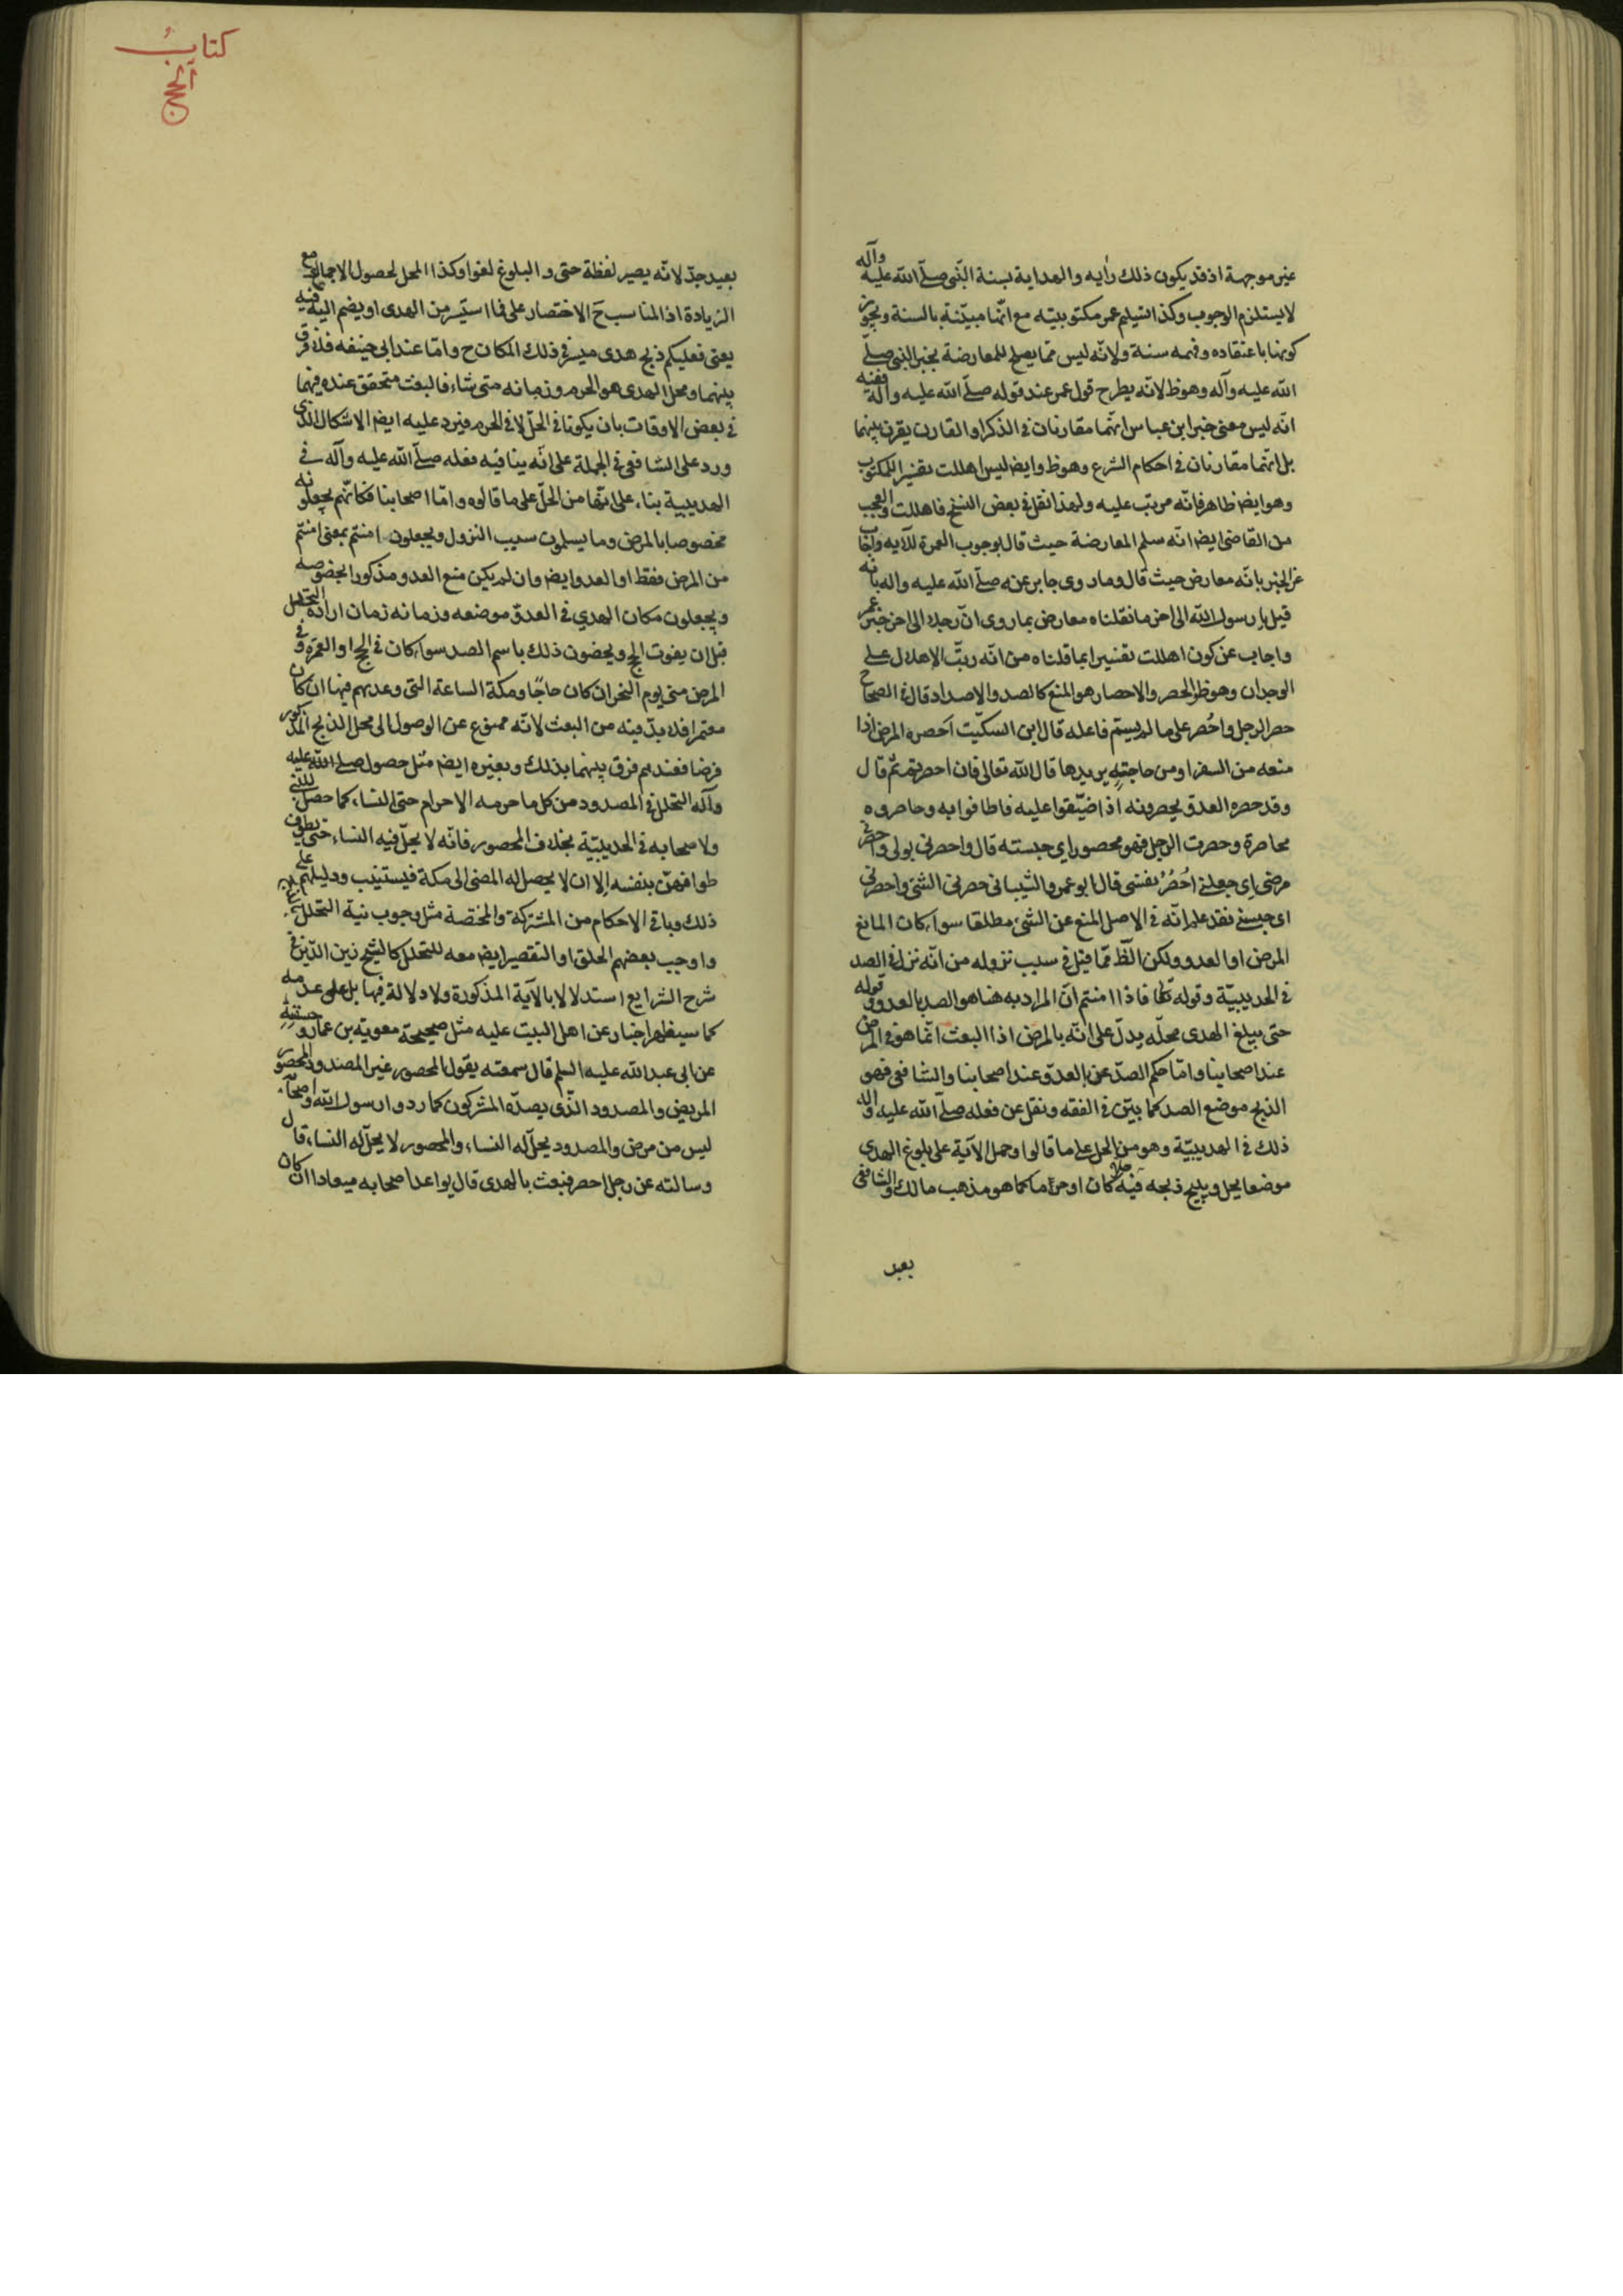 غير موجهة اذ قد يكون ذلك رأيه والهداية بسنة النّبى صلّى الله عليه وآله
لا يستلزم الوجوب وكذا تسليم عمر مكتوبيته مع انّها مبيّنة بالسنة ويجوز
كونها باعتقاده وفهمه سنة ولانّه ليس ممّا يصلح للمعارضة بخبر النبى صلّى
الله عليه وآله وهو ظ لانّه يطرح قول عمر عند قوله صلّى الله عليه وآله وفيه
انّه ليس معنى خبر ابن عباس انّهما مقارنان فى الذكر او القارن يقرن بينهما
بل انّهما مقارنان فى احكام الشرع وهو ظ وايضا ليس اهللت تفسير المكتوب
وهو ايضا ظاهر فانّه مرتب عليه ولهذا نقل فى بعض النسخ فاهللت والعجب
من القاضى ايضا انّه سلم المعارضة حيث قال بوجوب العمرة للآيه واجاب
عن الخبر بانّه معارض حيث قال وما روى جابر عنه صلّى الله عليه واله بانه
قيل يا رسول الله الى اخر ما نقلناه معارض بما روى انّ رجلا الى اخر خبر عمر
واجاب عن كون اهللت تفسيرا بما قلناه من انّه رتّب الاهلال على
الوجدان وهو ظ والحصر والاحصار هو المنع كالصد والاصداد قال فى الصحاح
حصر الرجل واحُصر على ما لم يسمّ فاعله قال ابن السكّيت احصره المرض اذا
منعه من السفر او من حاجتهِ يريدها قال الله تعالى فان احصرتم ثم قال
وقد حصره العدوّ يحصرونه اذا ضيّقوا عليه فاطافوا به وحاصروه
محاصرة وحصرت الرجل فهو محصور اى حبسته قال واحصرنى بولى واحصرنى
مرضى اى جعلنى احُصُرُ نفسى قال ابو عمرو الشيبانى حصرنى الشئ واحصرنى
اى حبسنى فقد علم انّه فى الاصل المنع عن الشئ مطلقا سواء كان المانع
المرض او العدو ولكن الظّ ممّا قيل فى سبب نزوله من انّه نزل فى الصد
فى الحديبيّة وقوله تعالى فاذا امنتم انّ المراد به هنا هو الصد بالعدو وقوله
حتى يبلغ الهدى محلّه يدلّ على انّه بالمرض اذ البعث انّما هو فى المرض
عند اصحابنا وامّا حكم الصدّ عن العدوّ عند اصحابنا والشافعى فهو
الذبح موضع الصد كما بيّن فى الفقه ونقل عن فعله صلّى الله عليه واله
ذلك فى الحديبيّة وهو من الحلّ على ما قالوا وحمل الآية على بلوغ الهدى
موضعا يحل ويبيح ذبحه فيه حلا كان او حرما كما هو مذهب مالك والشافعى
بعيد
كتابُ
الحج
بعيد جدّا لانّه يصير لفظة حتى والبلوغ لغوا وكذا المحل لحصول الاجمال مع
الزيادة اذ المناسب حَ الاختصار على فما استيسر من الهدى او يضم اليه فيه
يعنى فعليكم ذبح هدى ميسّر فى ذلك المكان ح وامّا عند ابى حنيفه فلا فرق
بينهما ومحلّ الهدى هو الحرم وزمانه متى شاء فالبعث متحقق عنده فيهما
فى بعض الاوقات بان يكونا فى الحلّ لا فى الحرم فيرد عليه ايضا الاشكال الذى
ورد على الشافعى فى الجملة على انّه ينافيه فعله صلّى الله عليه وآله فى
الحديبية بناء على انّها من الحلّ على ما قالوه وامّا اصحابنا فكانّهم يجعلونه
مخصوصا بالمرض وما يسلمون سبب النزول ويجعلون امنتم بمعنى امنتم
من المرض فقط او العدو ايضا وان لم يكن منع العدو مذكورا بخصوصه
ويجعلون مكان الهدي فى العدوّ موضعه وزمانه زمان ارادة التحلل
قبل ان يفوت الحج ويخصّون ذلك باسم الصد سواء كان فى الحج او العمرة وفى
المرض منى يوم النحر ان كان حاجّا ومكة الساعة التى وعدهم فيها ان كان
معتمرا فلا بدّ فيه من البعث لانّه ممنوع عن الوصول الى محل الذبح المذكور
فرضا فعندهم فرق بينهما بذلك وبغيره ايضا مثل حصول صلى الله عليه
وآله التحلل فى المصدود من كل ما حرمه الاحرام حتى النساء كما حصل للنبى
ولاصحابه فى الحديبيّة بخلاف المحصور فانّه لا يحلّ فيه النساء حتى يطوف
طوافهنّ بنفسه اِلا ان لا يحصل له المضى الى مكة فيستنيب ودليلهم على
ذلك وباقى الاحكام من المشتركة والمختصة مثل وجوب نية التحلل
واوجب بعضهم الحلق او التقصير ايضا معه للتحلل كالشيخ زين الدّين فى
شرح الشرايع استدلالا بالآية المذكورة ولا دلالة فيها بل على عدمه
كما سيظهر اخبار عن اهل البيت عليه مثل صحيحة معوية بن عمار
عن ابى عبد الله عليه السلم قال سمعته يقول المحصور غير المصدود والمحصور
المريض والمصدود الّذى يصدّه المشركون كما ردوا رسول الله واصحآبه
ليس من مرض والمصدود يحلّ له النساء والمحصور لا يحلّ له النساء قال
وسالته عن رجل احصر فبعث بالهدى قال يواعد اصحابه ميعادا ان كان